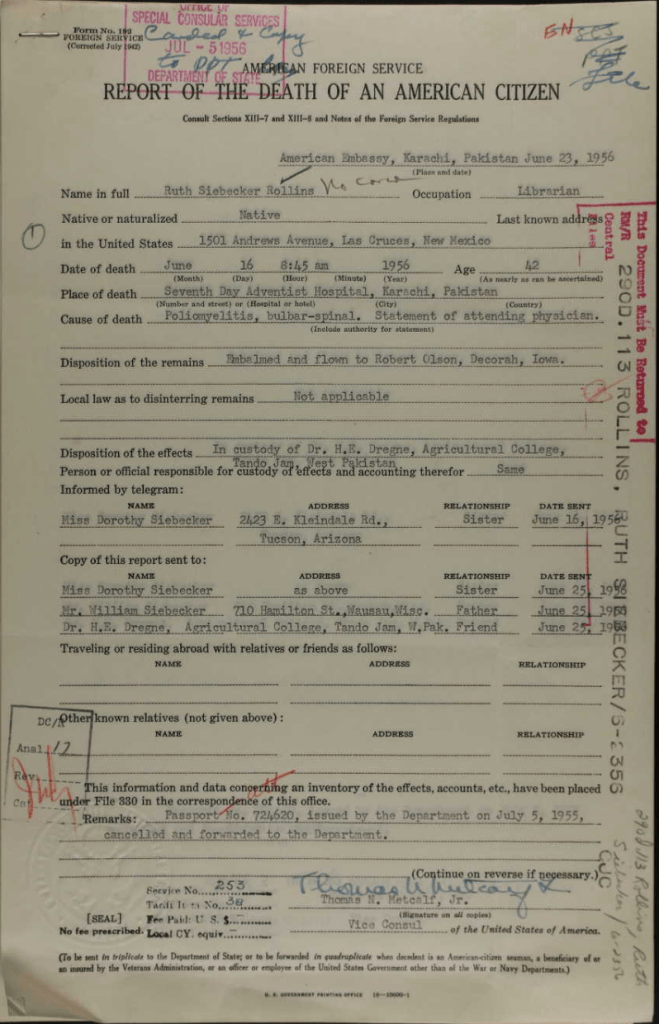 OFFICE OF
SPECIAL CONSULAR SERVICES
Carded & Copy
JUL - 5 1956
to PPT
DEPARTMENT OF STATE
Form No. 192
FOREIGN SERVICE
(Corrected July 1942)
AMERICAN FOREIGN SERVICE
REPORT OF THE DEATH OF AN AMERICAN CITIZEN
Consult Sections XIII-7 and XIII-8 and Notes of the Foreign Service Regulations
American Embassy, Karachi, Pakistan June 23, 1956
(Place and date)
Name in full Ruth Siebecker Rollins Occupation Librarian
Native or naturalized Native Last known address
in the United States 1501 Andrews Avenue, Las Cruces, New Mexico
Date of death June 16 8:45 am 1956 Age 42
(Month) (Day) (Hour) (Minute) (Year) (As nearly as can be ascertained)
Place of death Seventh Day Adventist Hospital, Karachi, Pakistan
(Number and street) or (Hospital or hotel) (City) (Country)
Cause of death Poliomyelitis, bulbar-spinal. Statement of attending physician.
(Include authority for statement)
Disposition of the remains Embalmed and flown to Robert Olson, Decorah, Iowa.
Local law as to disinterring remains Not applicable
Disposition of the effects In custody of Dr. H.E. Dregne, Agricultural College,
Tando Jam, West Pakistan
Person or official responsible for custody of effects and accounting therefor Same
Informed by telegram:
NAME ADDRESS RELATIONSHIP DATE SENT
Miss Dorothy Siebecker 2423 E. Kleindale Rd., Sister June 16, 1956
Tucson, Arizona
Copy of this report sent to:
NAME ADDRESS RELATIONSHIP DATE SENT
Miss Dorothy Siebecker as above Sister June 25, 1956
Mr. William Siebecker 710 Hamilton St.,Wausau,Wisc. Father June 25, 1956
Dr. H.E. Dregne, Agricultural College, Tando Jam, W.Pak. Friend June 25, 1956
Traveling or residing abroad with relatives or friends as follows:
NAME ADDRESS RELATIONSHIP
Other known relatives (not given above):
NAME ADDRESS RELATIONSHIP
DC/R
Anal. 17
Rev.
Cat
This information and data concerning an inventory of the effects, accounts, etc., have been placed
under File 330 in the correspondence of this office.
Remarks: Passport No. 724620, issued by the Department on July 5, 1955,
cancelled and forwarded to the Department.
(Continue on reverse if necessary.)
Service No. 253
Tariff Item No. 38
Fee Paid: U. S. $ -
Local CY. equiv. -
[SEAL]
No fee prescribed.
Thomas N. Metcalf, Jr.
(Signature on all copies)
Vice Consul of the United States of America.
(To be sent in triplicate to the Department of State; or to be forwarded in quadruplicate when decedent is an American-citizen seaman, a beneficiary of or
an insured by the Veterans Administration, or an officer or employee of the United States Government other than of the War or Navy Departments.)
U. S. GOVERNMENT PRINTING OFFICE 16-19600-1
This Document Must Be Returned to
RM/R Central Files
290D.113 ROLLINS, RUTH SIEBECKER/6-2356
CJC
290d.113 Rollins, Ruth
Siebecker/6-2356